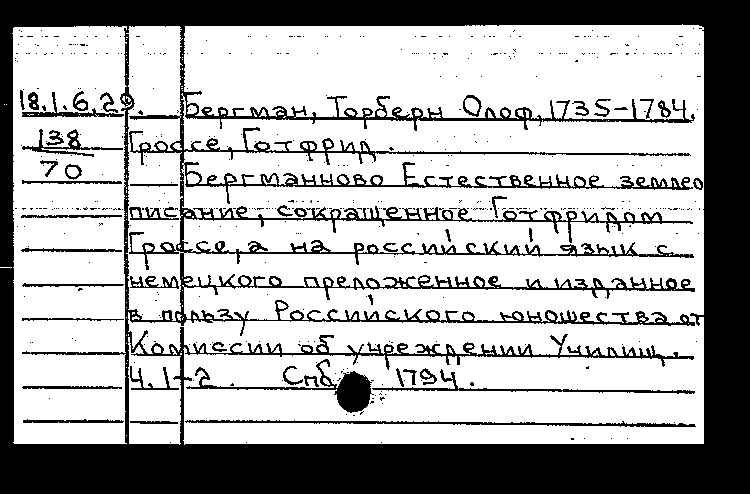 18.1.6.29. Бергман, Торберн Олоф, 1735-1784.
138 Гроссе, Готфрид.
70 Бергманново Естественное землео
писание, сокращенное Готфридом
Гроссе, а на российский язык с
немецкого преложенное и изданное
в пользу Российского юношества от
Комиссии об учреждении Училищ.
Ч. 1-2. Спб 1794.